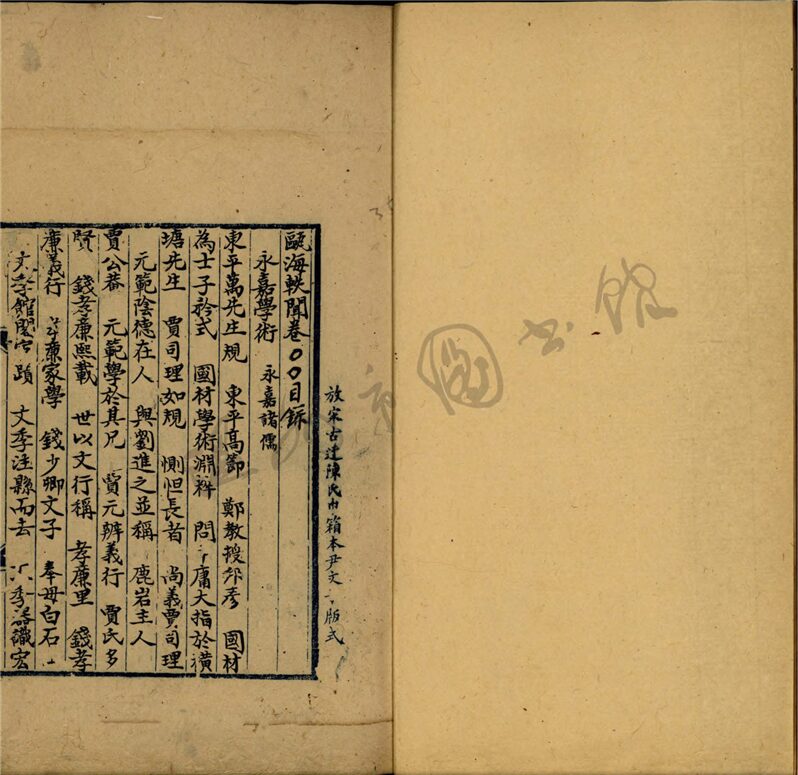 放宋古迂陳氏巾箱本尹文子版式
甌海軼聞卷〇〇目錄
永嘉學術 永嘉諸儒
東平萬先生規 東平高節 鄭教授邦彥 國材
為士子矜式 國材學術淵粹 問中庸大指於橫
塘先生 賈司理如規 惻怛長者 尚義賈司理
元範陰德在人 與劉進之並稱 鹿岩主人
賈公菴 元範學於其兄 賈元辨義行 賈氏多
賢 錢孝廉熙載 世以文行稱 孝廉里 錢孝
廉義行 孝廉家學 錢少卿文子 奉母白石山
文季館閣 蹟 文季注縣而去 文季器識宏
書館